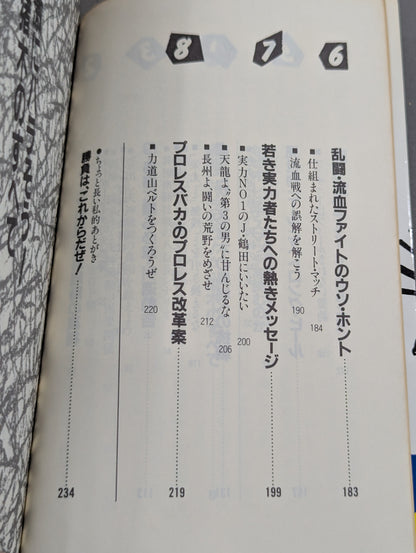 6
乱闘・流血ファイトのウソ・ホント……183
■仕組まれたストリート・マッチ 184
■流血戦への誤解を解こう 190
7
若き実力者たちへの熱きメッセージ……199
■実力NO1のJ・鶴田にいいたい 200
■天龍よ〝第3の男〟に甘んじるな 206
■長州よ、闘いの荒野をめざせ 212
8
プロレスバカのプロレス改革案……219
■力道山ベルトをつくろうぜ 220
●ちょっと長い私的あとがき
勝負は、これからだぜ!……234